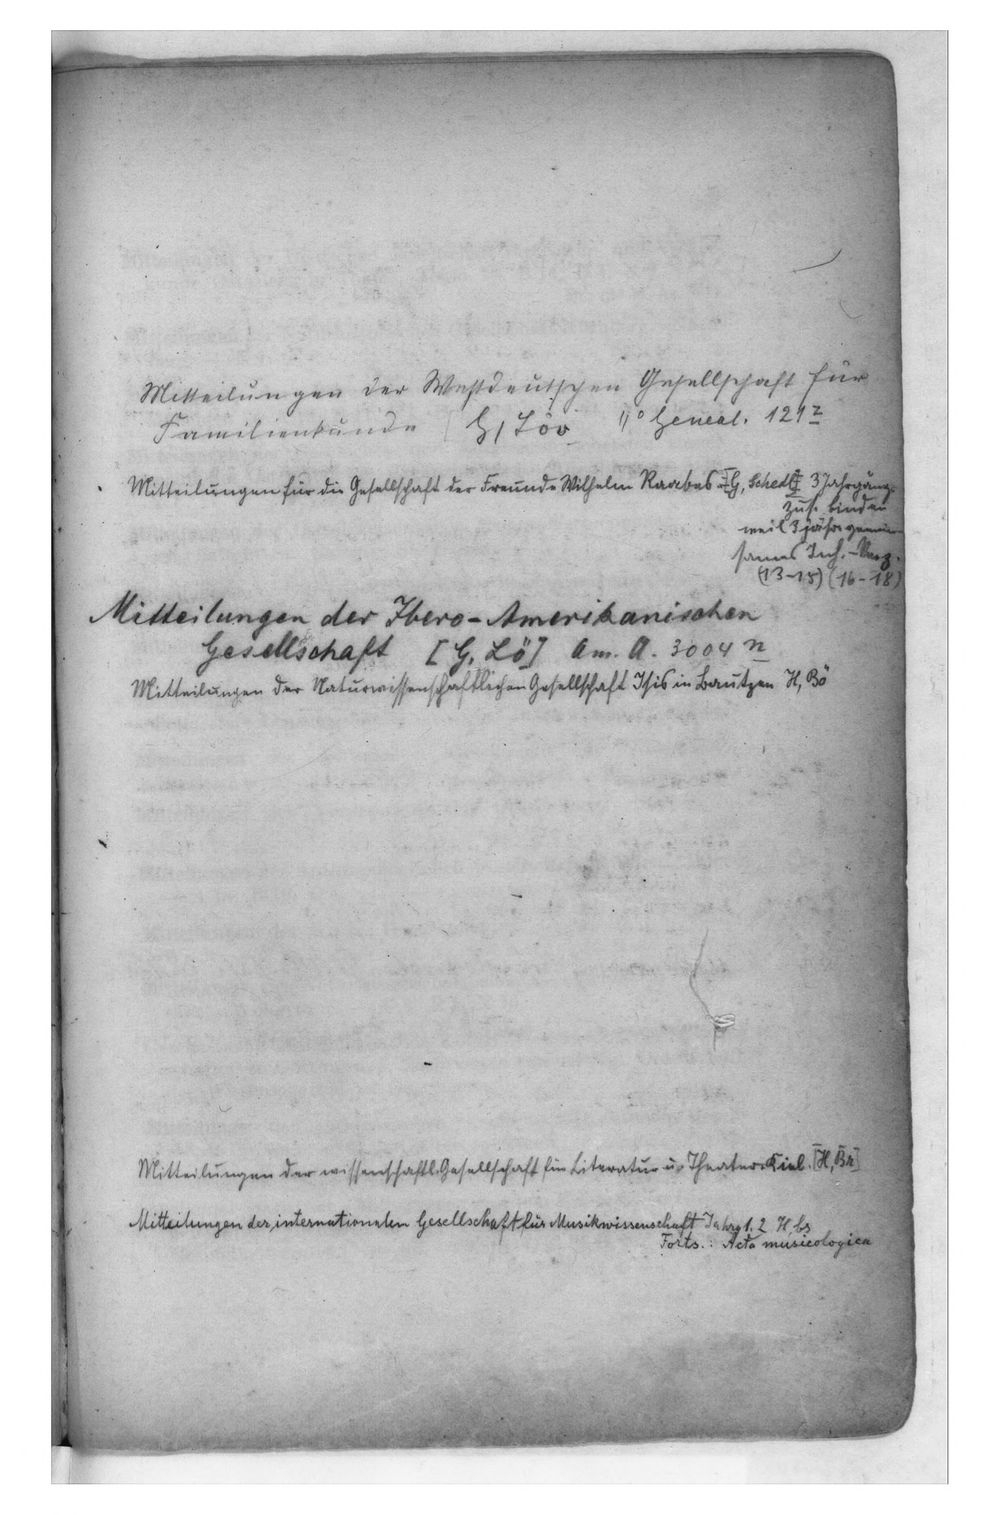 Mitteilungen der Westdeutschen Gesellschaft für
Familienkunde G, Löv 4° Geneal. 121 z
Mitteilungen für die Gesellschaft der Freunde Wilhelm Raabes [G, Schedl] 3 Jahrgänge
zus. binden
weil 3 jähr. gemein
sames Inh.-Verz.
(13-15) (16-18)
Mitteilungen der Ibero-Amerikanischen
Gesellschaft [G, Lö] Am. A. 3004 n
Mitteilungen der Naturwissenschaftlichen Gesellschaft Isis in Bautzen H, Bö
Mitteilungen der wissenschaftl. Gesellschaft für Literatur u. Theater. Kiel. [H, Bn]
Mitteilungen der internationalen Gesellschaft für Musikwissenschaft Jahrg 1. 2 H, bs
Forts.: Acta musicologica